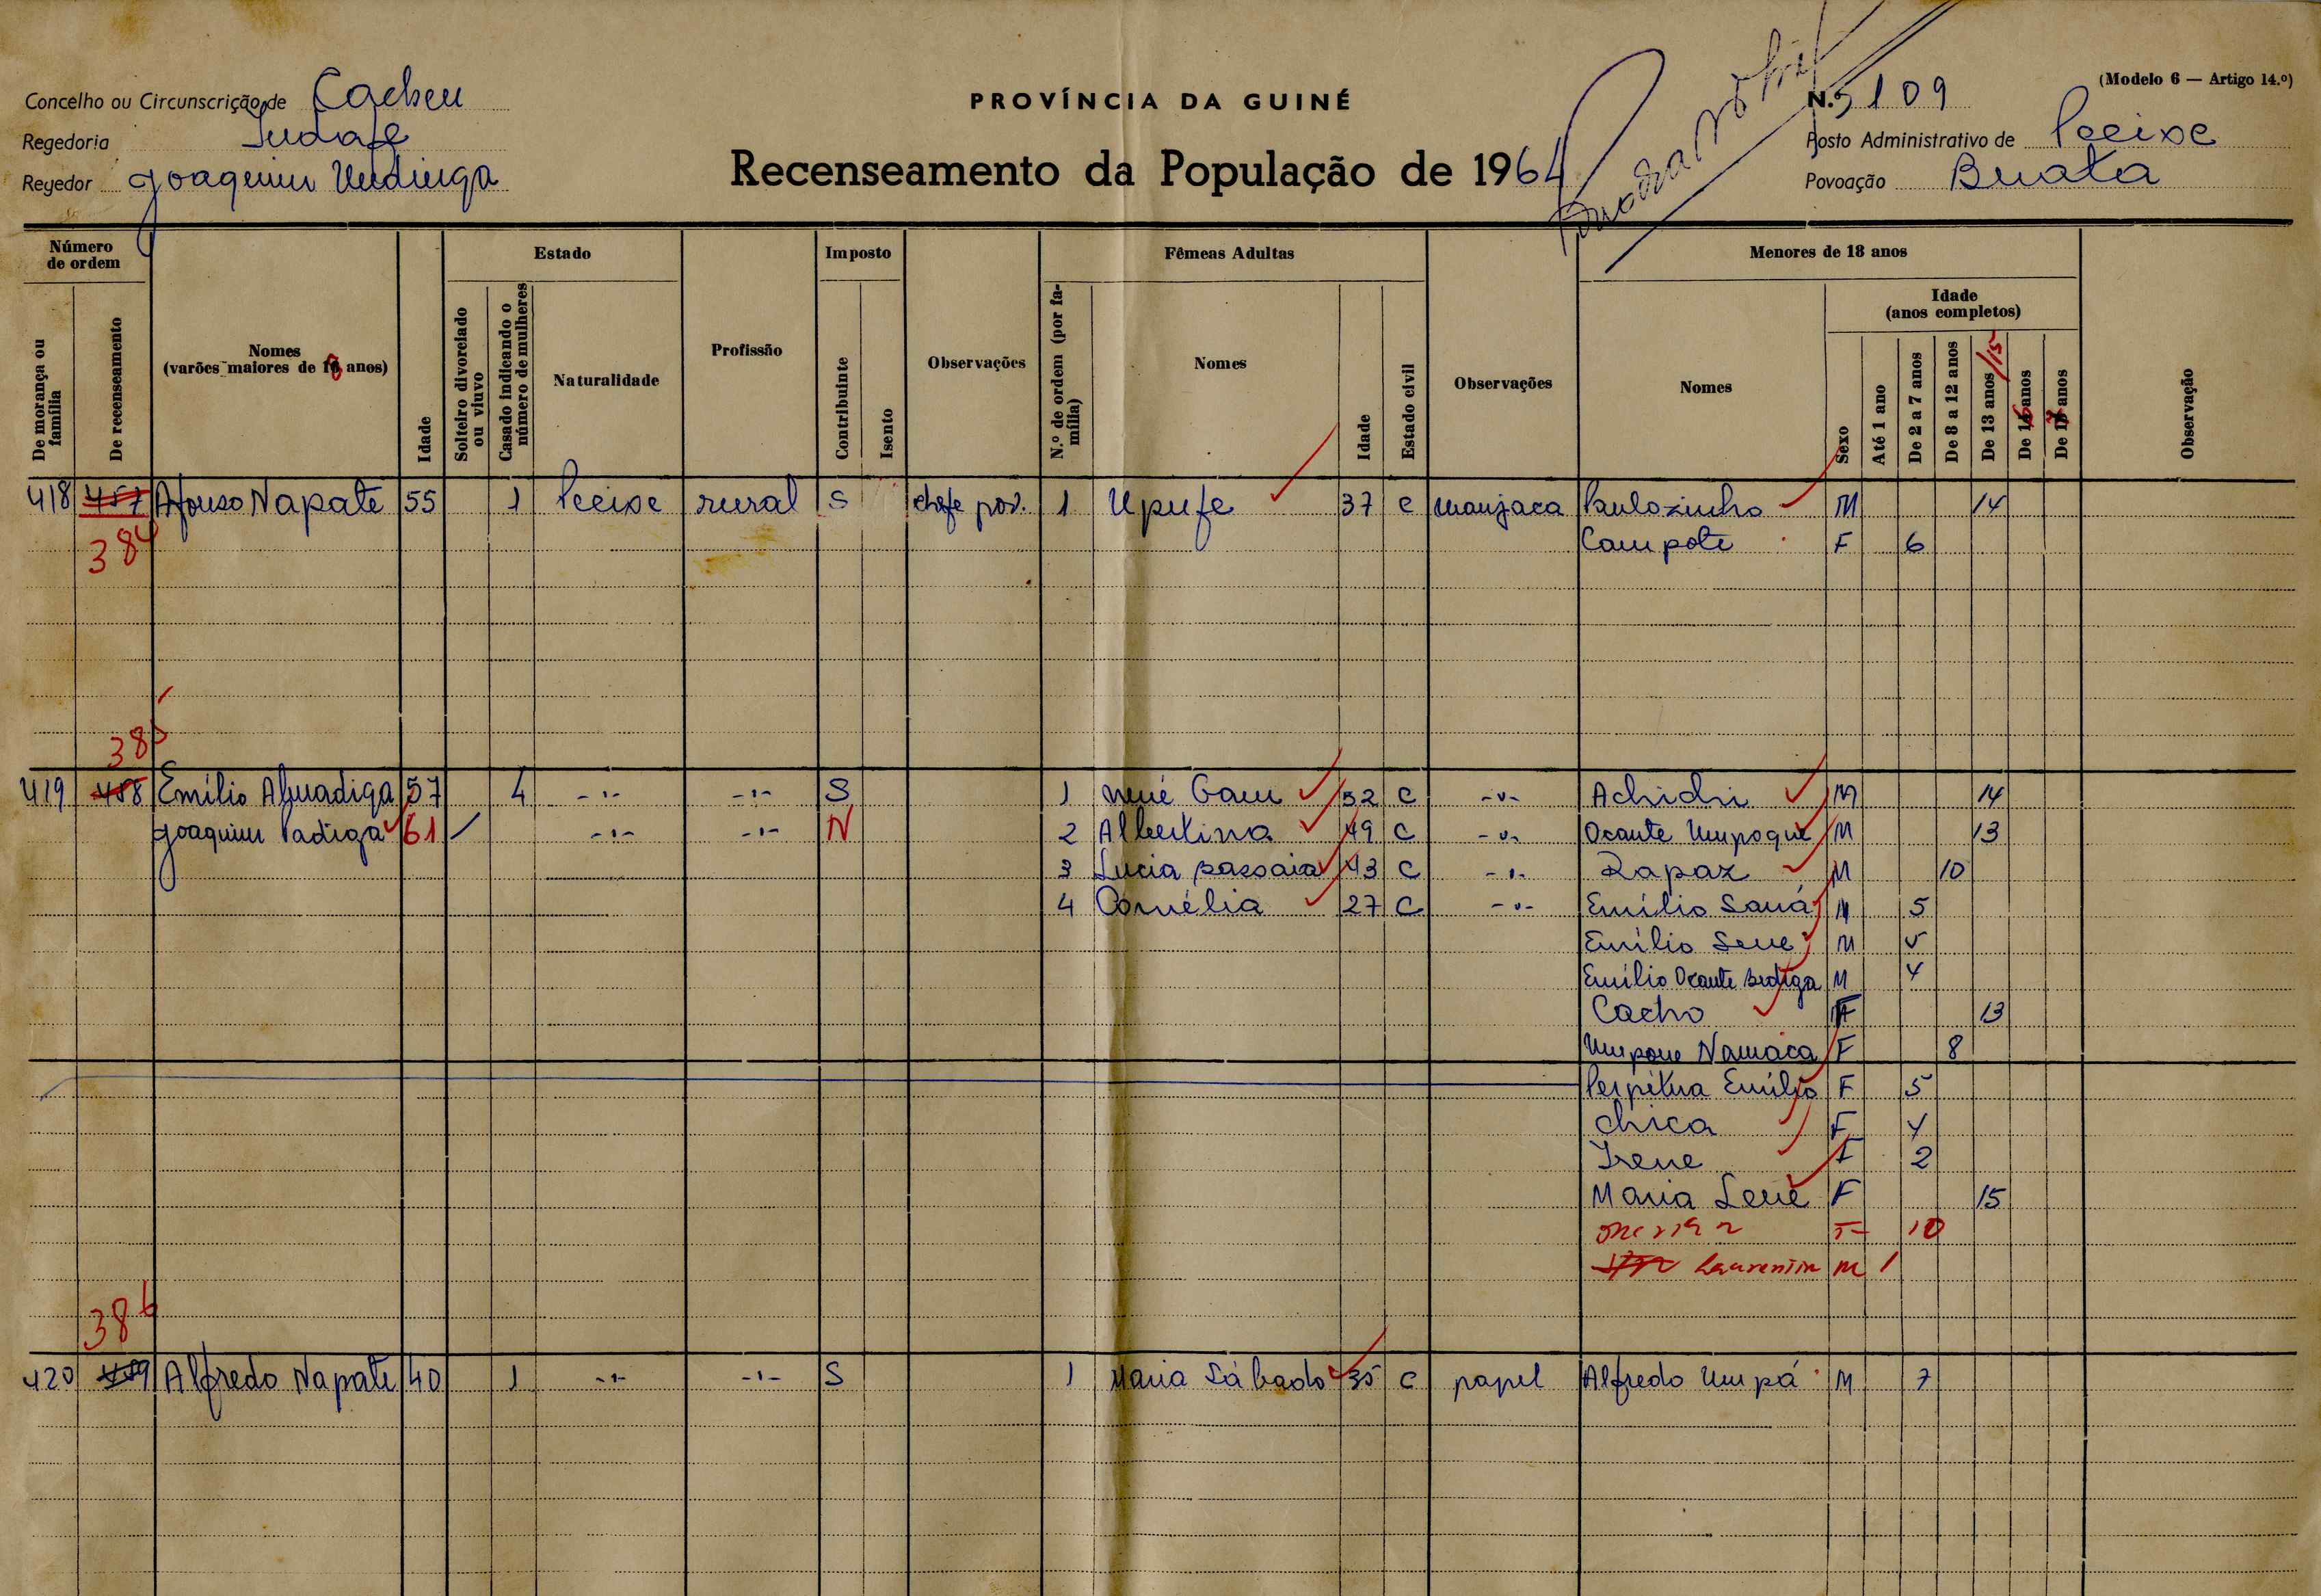 (Modelo 6 — Artigo 14.º)
Concelho ou Circunscrição de Cacheu
PROVÍNCIA DA GUINÉ
N.º 109
Regedoria
Posto Administrativo de Pecixe
Regedor Joaquim Undinga
Recenseamento da População de 1964
Povoação Buata
Número de ordem
Estado
Imposto
Fêmeas Adultas
Menores de 18 anos
De morança ou família
De recenseamento
Nomes
(varões maiores de 18 anos)
Idade
Solteiro divorciado ou viuvo
Casado indicando o número de mulheres
Naturalidade
Profissão
Contribuinte
Isento
Observações
N.º de ordem (por família)
Nomes
Idade
Estado civil
Observações
Nomes
Sexo
Idade
(anos completos)
Até 1 ano
De 2 a 7 anos
De 8 a 12 anos
De 13 anos /15
De 16 anos
De 17 anos
Observação
418 457 Afonso Napate 55 1 Pecixe rural S chefe pov. 1 Upufe 37 C manjaca Paulozinho M 14
384 Campote F 6
385
419 458 Emílio Almadiga 57 4 -"- -"- S 1 Nené Gam 52 C -"- Achichi M 14
Joaquim Padiga 61 / -"- -"- N 2 Albertina 49 C -"- Ocante Umpoque M 13
3 Lucia Bassaia 43 C -"- Rapaz M 10
4 Cornélia 27 C -"- Emílio Saná M 5
Emílio Sene M 5
Emílio Ocante Bediga M 4
Cacho F 13
Umpone Namaca F 8
Perpétua Emílio F 5
Chica F 4
Irene F 2
Maria Lené F 15
F 10
Laurentim M 1
386
420 459 Alfredo Napate 40 1 -"- -"- S 1 Maria Sábado 35 C papel Alfredo Umpá M 7